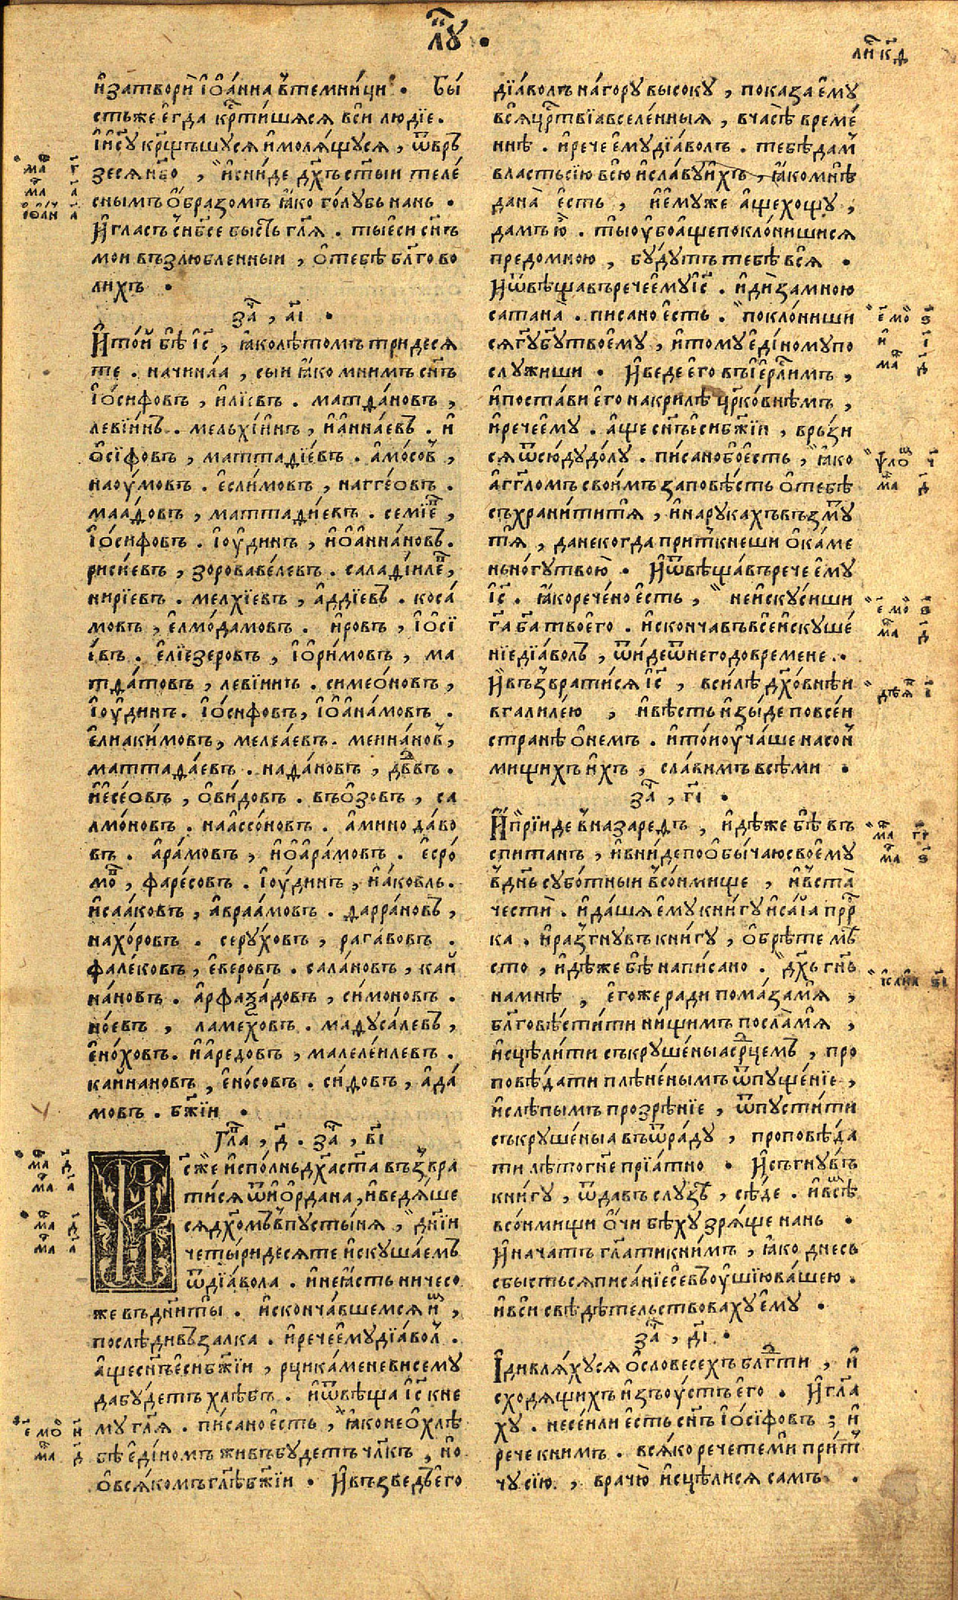 лꙋ҃ .
ли҃ к҃д
и҆затворѝ і҆ѡа́нна в̾темни́ци . Бы́
стьже є҆гда кр҃тишяся вси лю́дїе .
і҆і҃су кр҃щьшуся и҆моля́щуся , ѿвръ
зеся нб҃о , и҆сни́де дх҃ъ ст҃ыи теле́
снымъ о҆́бразомъ ꙗ҆́ко го́лубь нань .
И҆ гласъ с̾нб҃се бы́сть гл҃я . ты є҆си сн҃ъ
мои възлю́бленныи , о҆ тебѣ̀ бл҃гово
лихъ .
за҃ , а҃і .
И҆то́и бѣ̀ і҆с҃ , ꙗ҆́ко лѣ́томъ три́деся
те . начина́а , сыи ꙗ҆́ко мнимъ сн҃ъ
і҆о́сифовъ , и҆лїевъ . матѳа́новъ ,
леві́инъ . мельхі́инъ , и҆а҆нна́евъ . и҆
о҆́сїфовъ , маттаѳі́евъ . а҆мо́совъ ,
нао́умовъ . є҆сли́мовъ , нагге́овъ .
маа́ѳовъ , маттаѳі́евъ . семїе҃ ,
і҆о́сифовъ . і҆оу́динъ , и҆ѡа҆нна́новъ .
риси́евъ , зоровавѐлевъ . салаѳїиле҃ ,
нирі́евъ . мелхі́евъ , а҆дді́евъ . коса́
мовъ , є҆лмо́дамовъ . и҆́ровъ , і҆осі́
і҆евъ . є҆лїезеровъ , і҆ори́мовъ , ма
тѳа́товъ , леві́инъ . симео́новъ ,
і҆оу́динъ . і҆о́сифовъ , і҆ѡа҆на́мовъ .
є҆лиаки́мовъ , мелеа́евъ . меина́новъ ,
маттаѳа́евъ . наѳа́новъ , дв҃двъ .
і҆есе́овъ , о҆ви́довъ . въо҆́зовъ , са
лмо́новъ . наассо́новъ . а҆мина́даво
въ . а҆ра́мовъ , и҆ѡа҆ра́мовъ . є҆сро́
мо҃ , фаре́совъ . і҆оу́динъ , и҆а́ковль .
и҆саа́ковъ , а҆враа́мовъ . ѳарра́новъ ,
нахо́ровъ . серу́ховъ , рага́вовъ .
фале́ковъ , є҆́веровъ . сала́новъ , каи
на́новъ . а҆рфаѯа́довъ , си́мовъ .
но́евъ , ламе́ховъ . маѳуса́левъ ,
є҆но́ховъ . и҆а́редовъ , малеле́илевъ .
каина́новъ , є҆но́совъ . си́ѳовъ , а҆да́
мовъ . бж҃їи .
Гла҃ , д҃ . за҃ , в҃і
І҆с҃же и҆спо́лнь дх҃а ст҃а възвра
ти́ся ѿ и҆ѻ҆рда́на , и҆ведя́ше
ся дх҃омъ в̾пусты́ня , дн҃їи
четы́ридесяте и҆скуша́емъ
ѿ дїа́вола . и҆не ꙗ҆́сть ничесо
же въдн҃и ты̀ . и҆сконча́вшемся и҆мъ ,
послѣди́ взалка . и҆речѐ є҆му дїа́волъ .
а҆́ще сн҃ъ є҆си бж҃їи , рци ка́меневи сему
да бу́детъ хлѣ́бъ . и҆ѿвѣща̀ і҆с҃ к не
му гл҃я . пи́сано є҆́сть , ꙗ҆́ко не о҆ хлѣ́
бѣ є҆ди́номъ живъ бу́детъ чл҃къ , но
о҆ вся́комъ гл҃ѣ бж҃їи . И҆възве́дъ є҆го
дїа́волъ на́гору высоку , показа̀ є҆му
вся црс҃твїа вселе́нныя , вча́сѣ време́
ннѣ . и҆речѐ є҆му дїа́волъ . тебѣ̀ дам̾
власть сїю всю и҆сла́ву и҆́хъ , ꙗ҆́ко мнѣ̀
дана̀ є҆́сть , и҆є҆му́же а҆́ще хощу̀ ,
дамъ ю҆̀ . ты оу҆бо а҆́ще покло́нишися
предо мно́ю , бу́дутъ тебѣ̀ вся .
И҆ѿвѣща́въ речѐ є҆му і҆с҃ . и҆дѝ за мно́ю
сатана̀ . пи́сано є҆́сть . покло́ниши
ся гу҃ бу҃ твоє҆му , и҆тому є҆ди́ному по
слу́жиши . И҆веде є҆го въ і҆ер҃лимъ ,
и҆поста́ви є҆го на крилѣ̀ цр҃ко́внѣмъ ,
и҆рече є҆му . а҆́ще сн҃ъ є҆си бж҃їи , връ́зи
ся ѿсю́ду до́лу . пи́сано бо є҆́сть , ꙗ҆́ко
а҆гг҃ломъ свои́мъ заповѣ́сть о҆ тебѣ̀
съхрани́ти тя , и҆на рука́хъ възм̾у
т̾ тя , да некогда̀ при́ткнеши о҆ ка́ме
нь но́гу твою̀ . И҆ѿвѣща́въ речѐ є҆му
і҆с҃ . ꙗ҆́ко рече́но є҆́сть , не и҆ску́сиши
га҃ ба҃ твоего̀ . и҆сконча́въ всѐ и҆скуше́
нїе дїа́волъ , ѿи́де ѿ него̀ до вре́мене .
И҆възврати́ся і҆с҃ , вси́лѣ дх҃о́внѣи
в галиле́ю , и҆вѣ́сть и҆зы́де по всеи́
странѣ̀ о҆ не́мъ . и҆то́и оу҆ча́ше на сон̾
мищихъ и҆́хъ , сла́вимъ всѣми .
за҃ , г҃і .
И҆ прїи́де в̾назаре́тъ , и҆дѣ́же бѣ̀ въ
спита́нъ , и҆вни́де по о҆бы́чаю своє҆му
в̾дн҃ь субо́тныи в̾со́нмище , и҆в̾ста̀
честѝ . и҆да́шя є҆му кни́гу и҆са́їа пр҃р
ка . и҆разгну́въ кни́гу , о҆брѣ́те мѣ́
сто , и҆дѣ́же бѣ̀ напи́сано . дх҃ъ гн҃ь
на мнѣ̀ , є҆го́же ра́ди пома́за мя̀ ,
бл҃говѣсти́ти ни́щимъ посла̀ мя̀ ,
и҆сцѣли́ти съкруше́ныа ср҃цемъ , про
повѣ́дати плѣне́нымъ ѿпуще́нїе ,
и҆слѣпы́мъ прозрѣ́нїе , ѿпусти́ти
съкруше́ныа въ ѿра́ду , проповѣ́да
ти лѣ́то гн҃е прїа́тно . И҆съгну́въ
кни́гу , ѿда́въ слузѣ̀ , сѣ́де . и҆всѣ̀
в со́нмищи о҆́чи бѣ́ху зря́ще нань .
И҆нача́тъ гл҃ати к ни́мъ , ꙗ҆́ко днесь
сбы́стьсяписа́нїе сѐ въ оу҆шїю ва́шею .
и҆вси свѣдѣ́тельствоваху є҆му .
за҃ , д҃і .
І҆дивля́хуся о҆ словесе́хъ блг҃ти , и҆
сходя́щихъ и҆зъ оу҆стъ є҆го . И҆гл҃а
ху . не се́и ли є҆́сть сн҃ъ і҆о́сїфовъ ; и҆
рече к ни́мъ . вся́ко рече́те ми при́т
чу сїю̀ , врачю̀ и҆сцѣли́ся самъ .